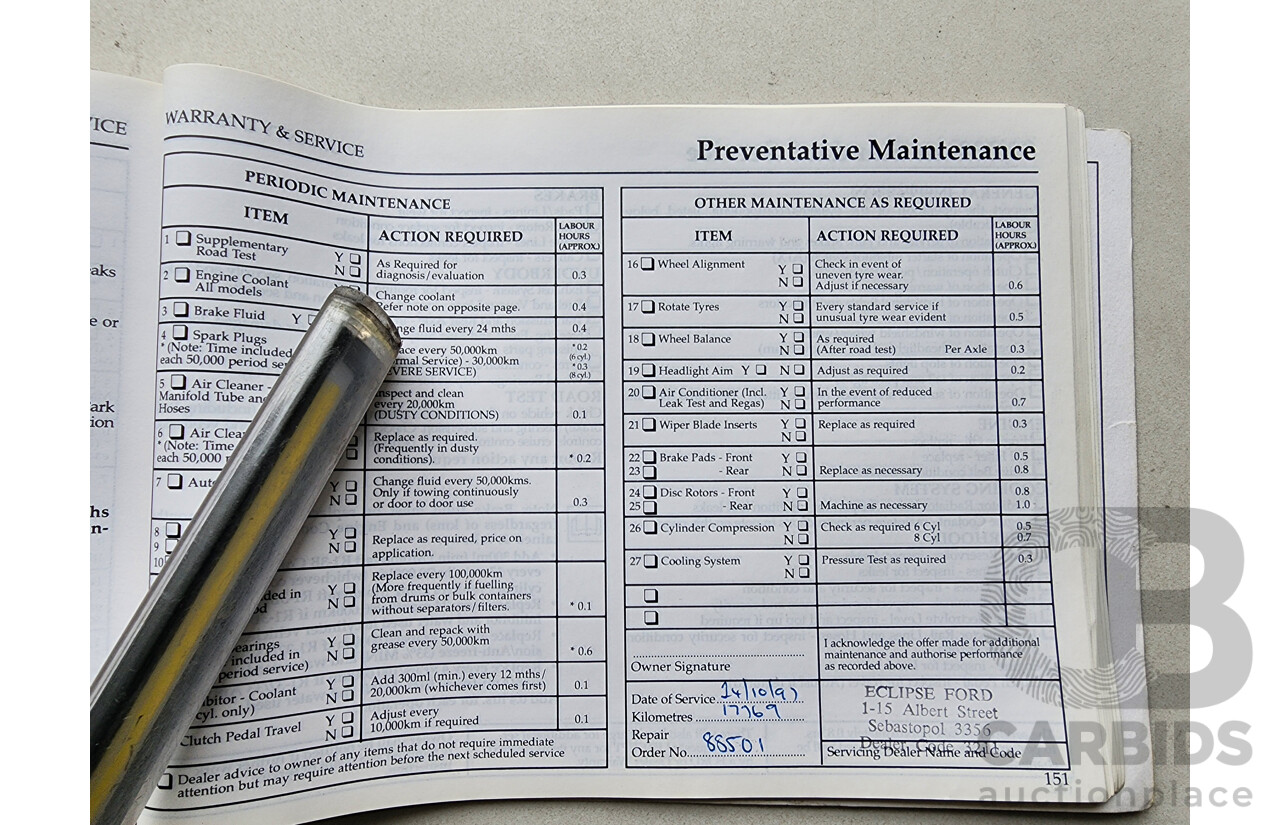 ICE
aks
e or
ark
ion
hs
n-
WARRANTY & SERVICE
Preventative Maintenance
PERIODIC MAINTENANCE
ITEM ACTION REQUIRED LABOUR HOURS (APPROX)
1 Supplementary Road Test Y N As Required for diagnosis/evaluation 0.3
2 Engine Coolant All models Change coolant Refer note on opposite page. 0.4
3 Brake Fluid Y nge fluid every 24 mths 0.4
4 Spark Plugs ace every 50,000km *0.2
*(Note: Time included rmal Service) - 30,000km (6 cyl.)
each 50,000 period ser VERE SERVICE) *0.3 (8 cyl.)
5 Air Cleaner - nspect and clean
Manifold Tube and every 20,000km
Hoses (DUSTY CONDITIONS) 0.1
6 Air Clea Replace as required.
*(Note: Time (Frequently in dusty
each 50,000 p conditions). *0.2
7 Aut Y N Change fluid every 50,000kms.
Only if towing continuously
or door to door use 0.3
8
9 Y N Replace as required, price on
10 application.
ded in Y N Replace every 100,000km
(More frequently if fuelling
from drums or bulk containers
without separators/filters. *0.1
earings Y Clean and repack with
included in N grease every 50,000km *0.6
period service)
bitor - Coolant Y Add 300ml (min.) every 12 mths/
cyl. only) N 20,000km (whichever comes first) 0.1
Clutch Pedal Travel Y N Adjust every
10,000km if required 0.1
Dealer advice to owner of any items that do not require immediate
attention but may require attention before the next scheduled service
OTHER MAINTENANCE AS REQUIRED
ITEM ACTION REQUIRED LABOUR HOURS (APPROX)
16 Wheel Alignment Y N Check in event of
uneven tyre wear.
Adjust if necessary 0.6
17 Rotate Tyres Y N Every standard service if
unusual tyre wear evident 0.5
18 Wheel Balance Y N As required
(After road test) Per Axle 0.3
19 Headlight Aim Y N Adjust as required 0.2
20 Air Conditioner (Incl. Y In the event of reduced
Leak Test and Regas) N performance 0.7
21 Wiper Blade Inserts Y N Replace as required 0.3
22 Brake Pads - Front Y 0.5
23 - Rear N Replace as necessary 0.8
24 Disc Rotors - Front Y 0.8
25 - Rear N Machine as necessary 1.0
26 Cylinder Compression Y Check as required 6 Cyl 0.5
N 8 Cyl 0.7
27 Cooling System Y N Pressure Test as required 0.3
Owner Signature
I acknowledge the offer made for additional
maintenance and authorise performance
as recorded above.
Date of Service 14/10/9)
Kilometres 17769
Repair
Order No. 88501
ECLIPSE FORD
1-15 Albert Street
Sebastopol 3356
Dealer Code
Servicing Dealer Name and Code
151
CARBIDS
auctionplace